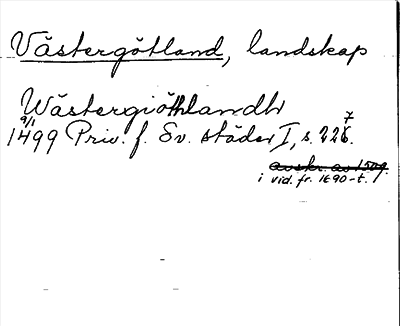 Västergötland, landskap
Wästergiöthlandh
9/1
1499 Priv. f. Sv. städer I, s. 227.
avskr. av 1509.
i vid. fr. 1690-t.